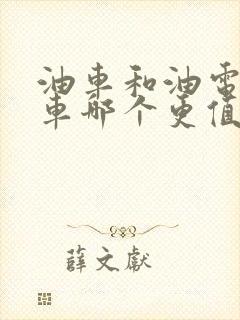 油車和油電
車哪个更值
薛文獻